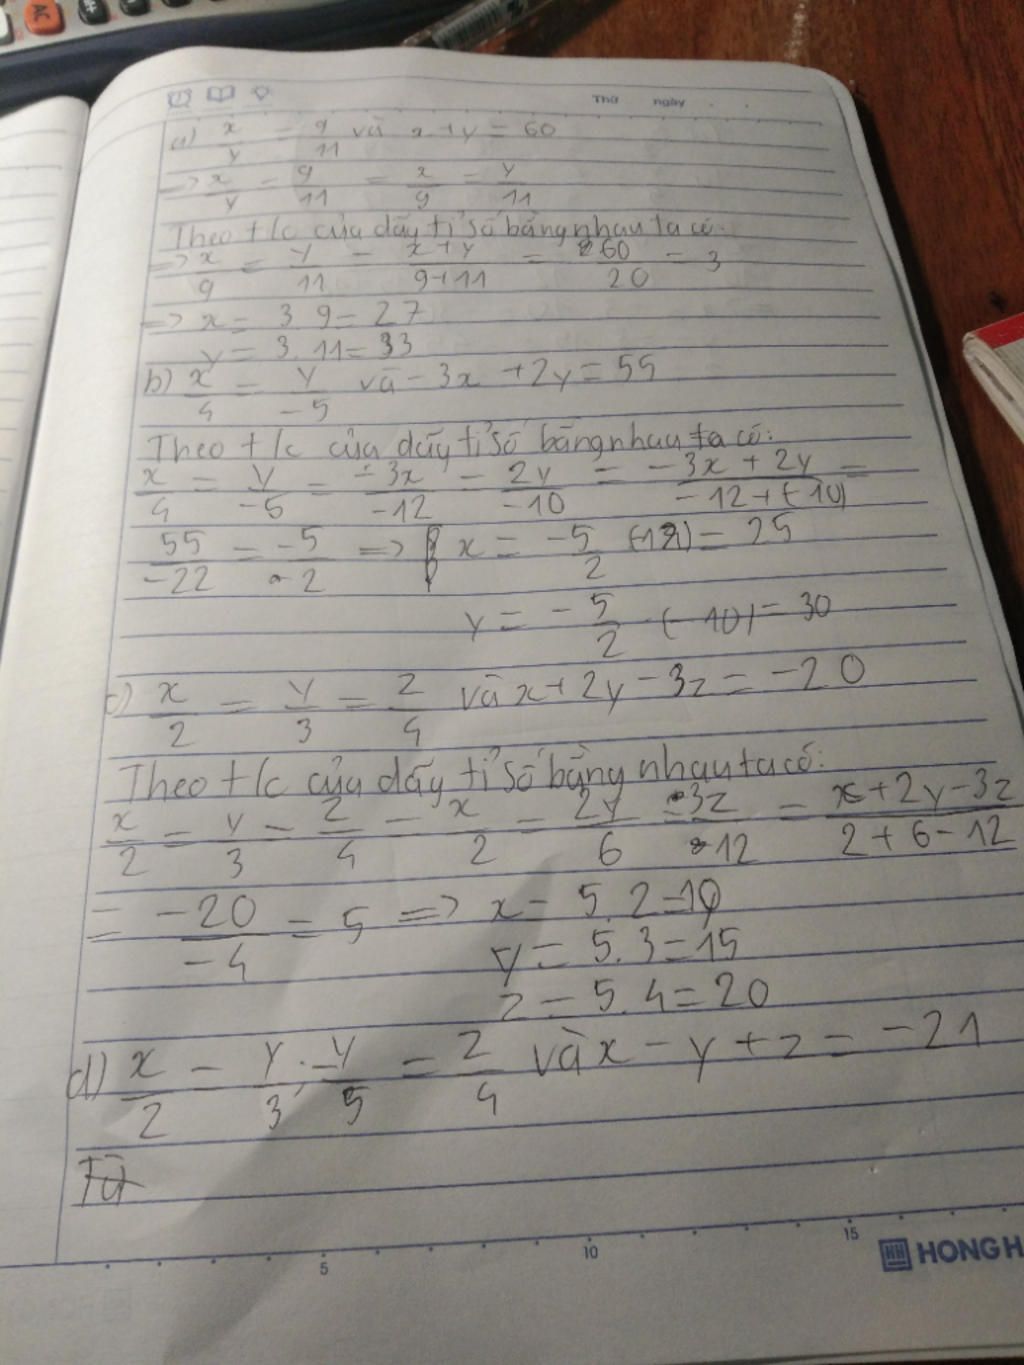 AC
Thứ ngày
a) x/y = 9/11 và x + y = 60
=> x/y = 9/11 = x/9 = y/11
Theo t/c của dãy tỉ số bằng nhau ta có:
=> x/9 = y/11 = x+y/9+11 = 60/20 = 3
=> x = 3 9 = 27
y = 3. 11 = 33
b) x/4 = y/-5 và -3x + 2y = 55
Theo t/c của dãy tỉ số bằng nhau ta có:
x/4 = y/-5 = -3x/-12 = 2y/-10 = -3x + 2y/-12+(-10) =
55/-22 = -5/2 => x = -5/2 (-12) = 25
y = -5/2 . (-10) = 30
c) x/2 = y/3 = z/4 và x + 2y - 3z = -20
Theo t/c của dãy tỉ số bằng nhau ta có:
x/2 = y/3 = z/4 = x/2 = 2y/6 = 3z/12 = x+2y-3z/2+6-12
= -20/-4 = 5 => x = 5. 2 = 10
y = 5. 3 = 15
z = 5. 4 = 20
d) x/2 = y/3 ; y/5 = z/4 và x - y + z = -21
Từ
5 10 15
HH HONG H